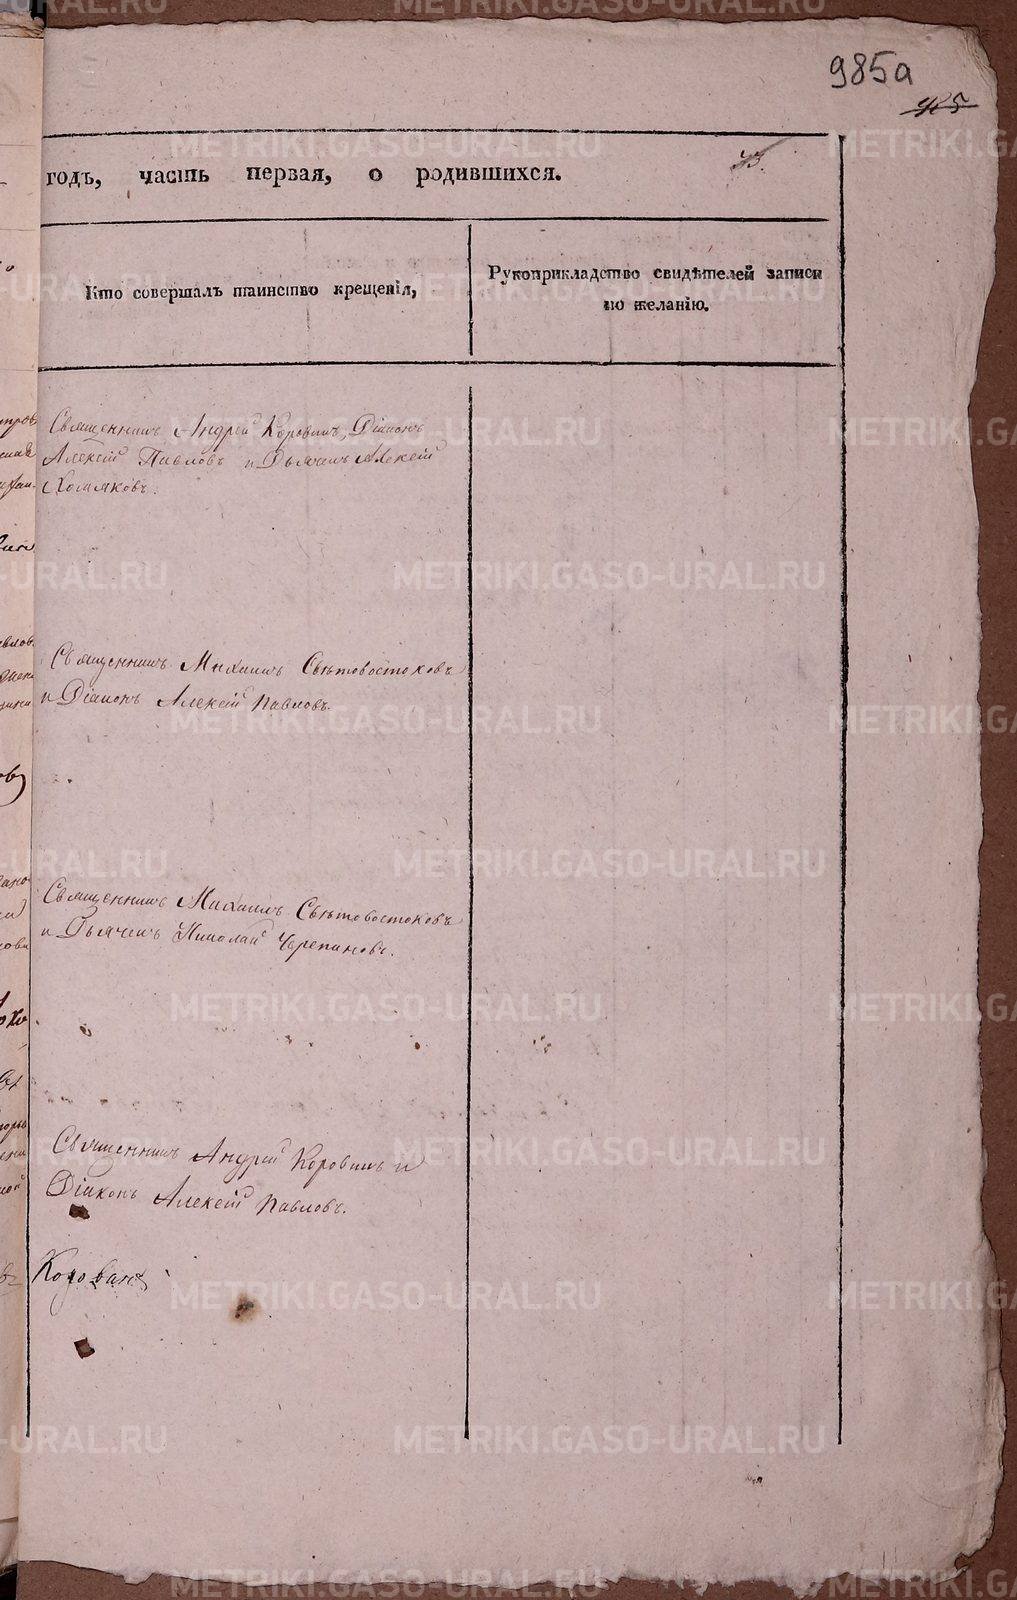 985а
годъ, часть первая, о родившихся.
Кто совершалъ таинство крещенія,
Рукоприкладство свидѣтелей записи
по желанію.
Священникъ Андрей Коровинъ, Діаконъ
Алексій Павловъ и Дьячекъ Алексій
Хомяковъ.
Священникъ Михаилъ Свѣтовостоковъ
и Діаконъ Алексій Павловъ.
Священникъ Михаилъ Свѣтовостоковъ
и Дьячекъ Николай Черепановъ.
Священникъ Андрей Коровинъ и
Діаконъ Алексій Павловъ.
METRIKI.GASO-URAL.RU